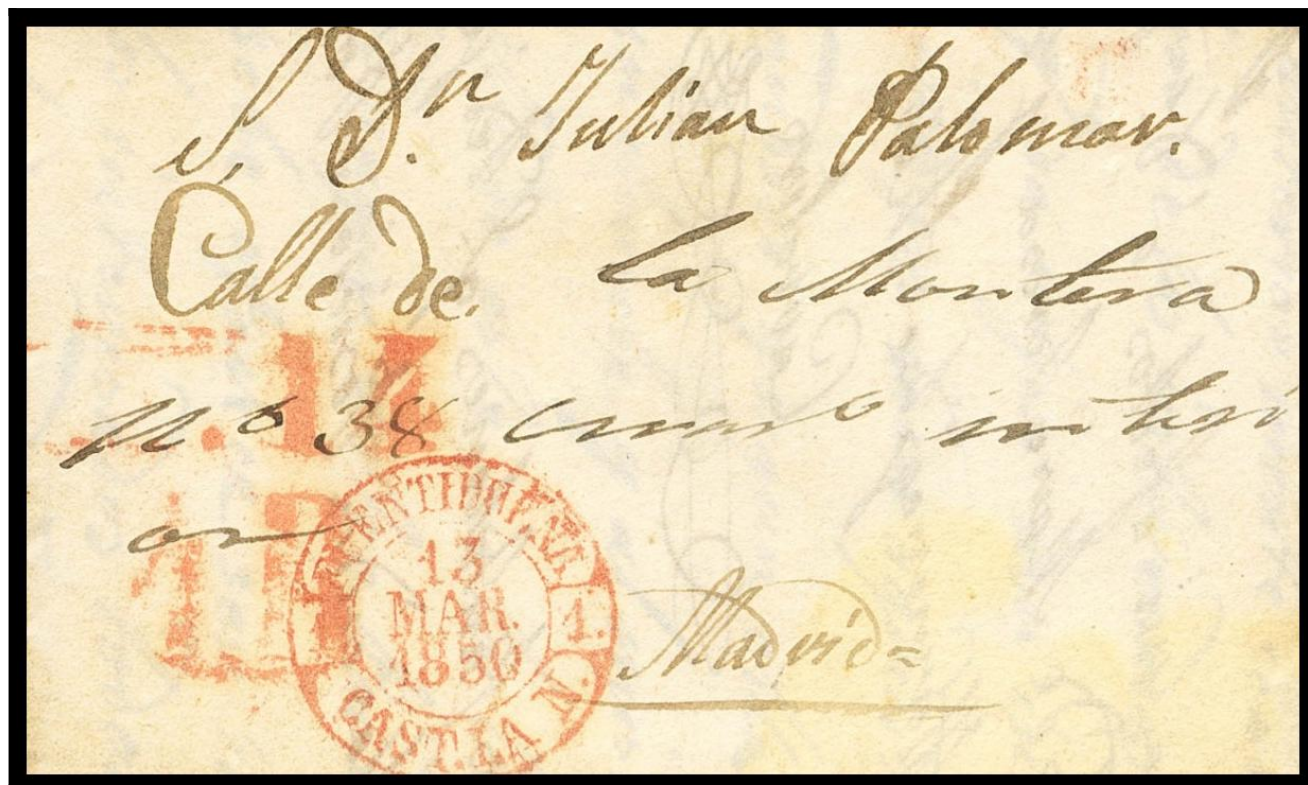 S. Dn Julian Palomar.
Calle de. la Montera
no 38 cuarto interi
or
Madrid=
14
1R
FUENTIDUEÑA 1.
13
MAR.
1850
CAST.LA N.